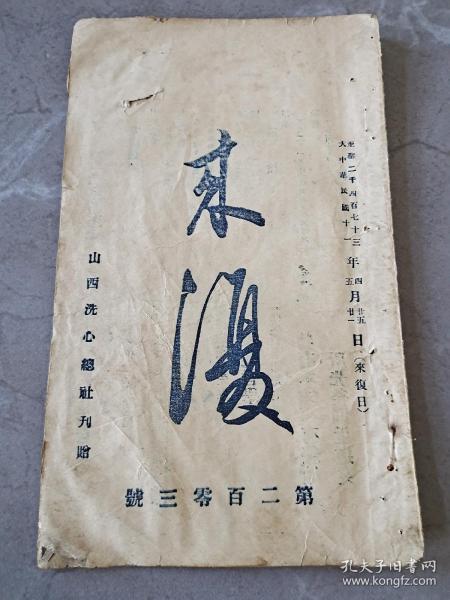 聖誕二千四百七十三年四月廿五日(來復日)
大中華民國十一年五月廿一日(來復日)
來復
山西洗心總社刊贈
第二百零三號
孔夫子旧书网
www.kongfz.com